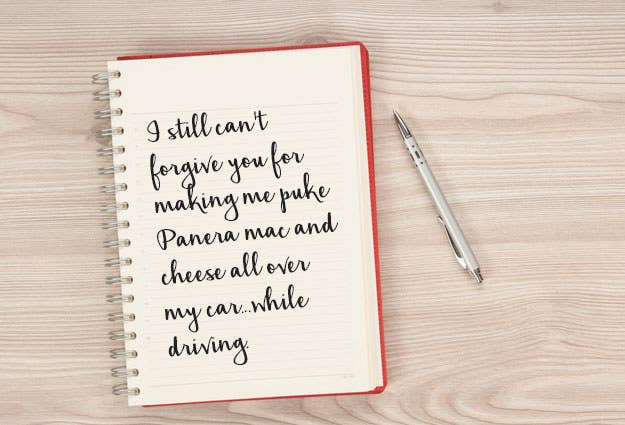 I still can't
forgive you for
making me puke
Panera mac and
cheese all over
my car...while
driving.